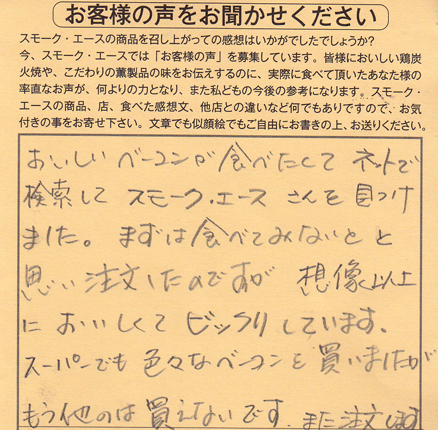 お客様の声をお聞かせください
スモーク・エースの商品を召し上がっての感想はいかがでしたでしょうか?
今、スモーク・エースでは「お客様の声」を募集しています。皆様においしい鶏炭
火焼や、こだわりの薫製品の味をお伝えするのに、実際に食べて頂いたあなた様の
率直なお声が、何よりの力となり、また私どもの今後の参考になります。スモーク・
エースの商品、店、食べた感想文、他店との違いなど何でもありですので、お気
付きの事をお寄せ下さい。文章でも似顔絵でもご自由にお書きの上、お送りください。
おいしいベーコンが食べたくてネットで
検索してスモーク・エースさんを見つけ
ました。まずは食べてみないとと
思い注文したのですが 想像以上
においしくてビックリしています。
スーパーでも色々なベーコンを買いましたが
もう他のは買えないです。また注文します